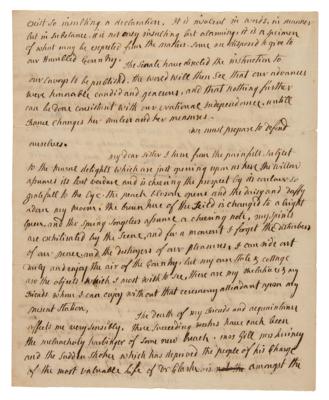 such so insulting a declaration. it is insolent in words, in manner
but in substance. it is not only insulting but alarming. it is a specimen
of what may be expected from the nation some are disposed to give to
our Humbled Country.
The Senate have directed the instruction to
our Envoys to be published. the World will then see that our advances
were honorable candid and generous, and that nothing further
can be done consistent with our National Independence, until
France changes her rulers and her measures.
we must prepare to defend
ourselves.
my dear sister I turn from the painful subject
to the Rural delights which are just opening upon us here, the willow
assumes its best verdure and is chearing the prospect by its colour so
gratefull to the Eye. the peach blossom opens and the daisy and daffy
adorn my room. the brown hue of the Field is changed to a bright
Green, and the Spring Songsters assume a chearing note, my spirits
are exhilirated by the Scene, and for a moment I forget the disturbers
of our peace and the destroyers of our pleasures. I can ride out
daily and enjoy the air of the Country. but my own Rock & cottage
are the objects which I most wish to see, there are my relatives & my
Friends whom I can enjoy without that ceremony attendant upon my
present station.
The death of my Friends and acquaintance
affects me very sensibly. three succeeding weeks have each been
the melancholy harbinger of some new breach. Mrs Gill Mrs Quincy
and the sudden stroke which has deprived the people of his Charge
of the most valuable life of Dr Clark is amongst the